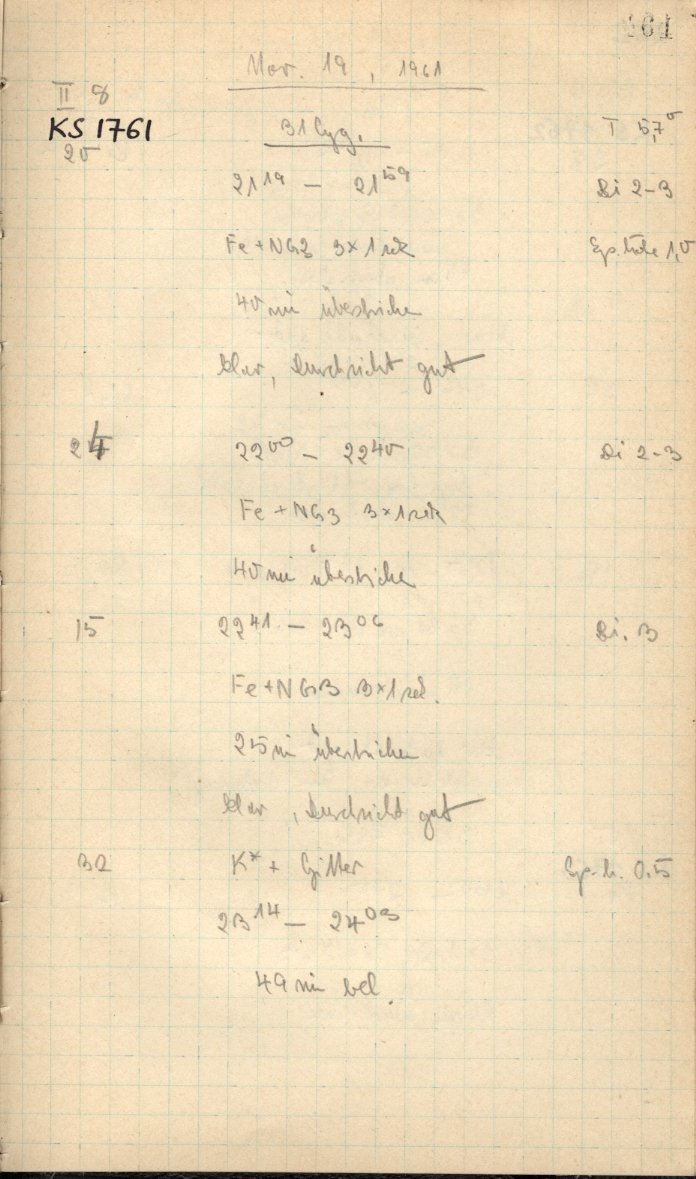 161
Nov. 19, 1961
II 8
KS 1761 31 Cyg. T 5,7°
20
21 19 — 21 59 Di 2-3
Fe + NG3 3×1 sek Sp. höhe 1,0
40 min überstrichen
klar, Durchsicht gut
24 22 00 — 22 40 Di 2-3
Fe + NG3 3×1 sek
40 min überstrichen
15 22 41 — 23 06 Di. 3
Fe + NG3 3×1 sek.
25 min überstrichen
klar, Durchsicht gut
32 K* + Gitter Sp. h. 0.5
23 14 — 24 03
49 min bel.